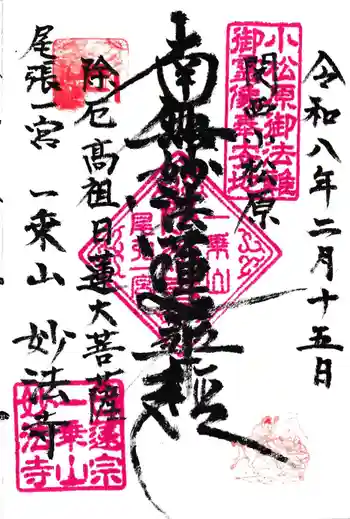 令和八年二月十五日
小松原御法難
関西小松原
南無妙法蓮華経
一乗山
尾張一宮
除厄高祖日蓮大菩薩
尾張一宮 一乗山 妙法寺
日蓮宗
一乗山
妙法寺